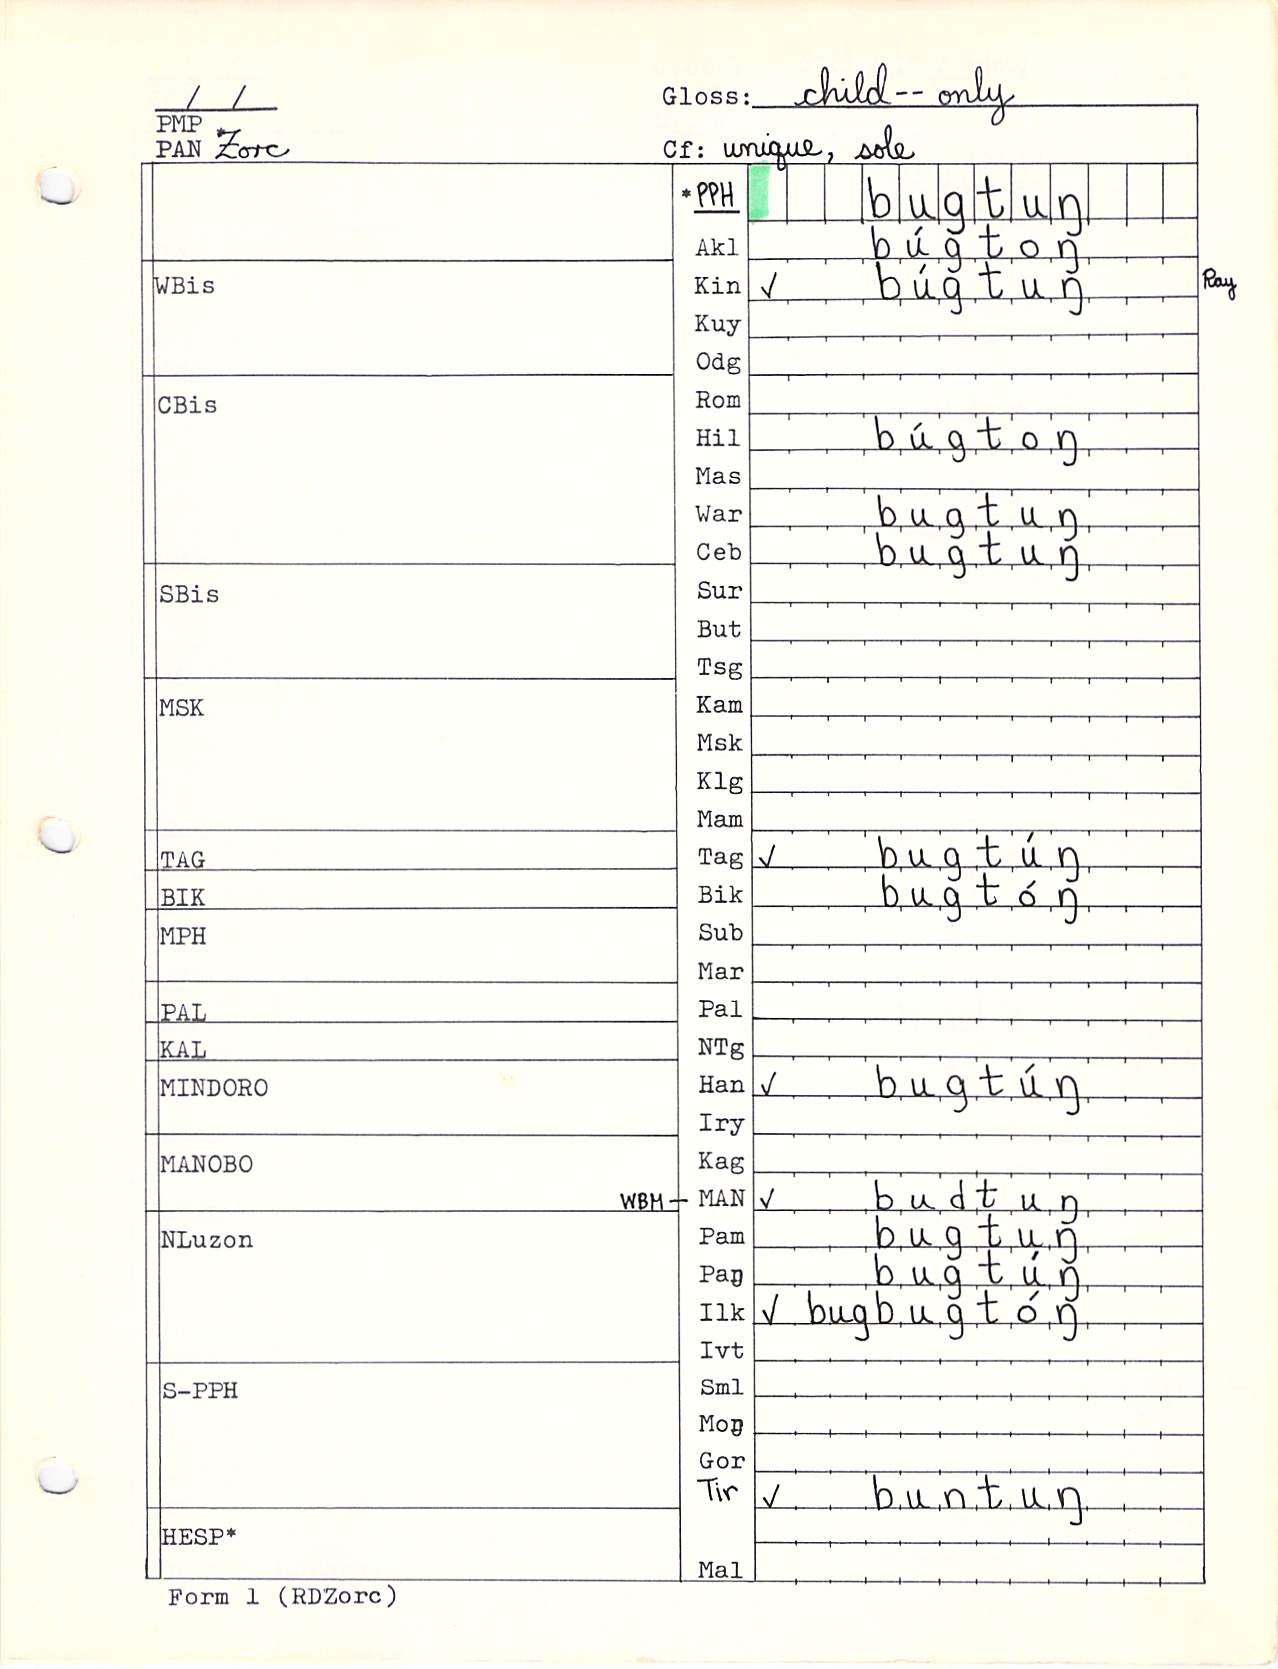 / /
Gloss: child -- only
PMP
PAN *Zorc
Cf: unique, sole
*PPH bugtuŋ
Akl búgtoŋ
WBis
Kin ✓ búgtuŋ Ray
Kuy
Odg
Rom
CBis
Hil búgtoŋ
Mas
War bugtuŋ
Ceb bugtuŋ
SBis
Sur
But
Tsg
MSK
Kam
Msk
Klg
Mam
TAG
Tag ✓ bugtúŋ
BIK
Bik bugtóŋ
MPH
Sub
Mar
PAL
Pal
KAL
NTg
MINDORO
Han ✓ bugtúŋ
Iry
MANOBO
Kag
WBM — MAN ✓ budtuŋ
NLuzon
Pam bugtuŋ
Paŋ bugtúŋ
Ilk ✓ bugbugtóŋ
Ivt
S-PPH
Sml
Moŋ
Gor
Tir ✓ buntuŋ
HESP*
Mal
Form 1 (RDZorc)